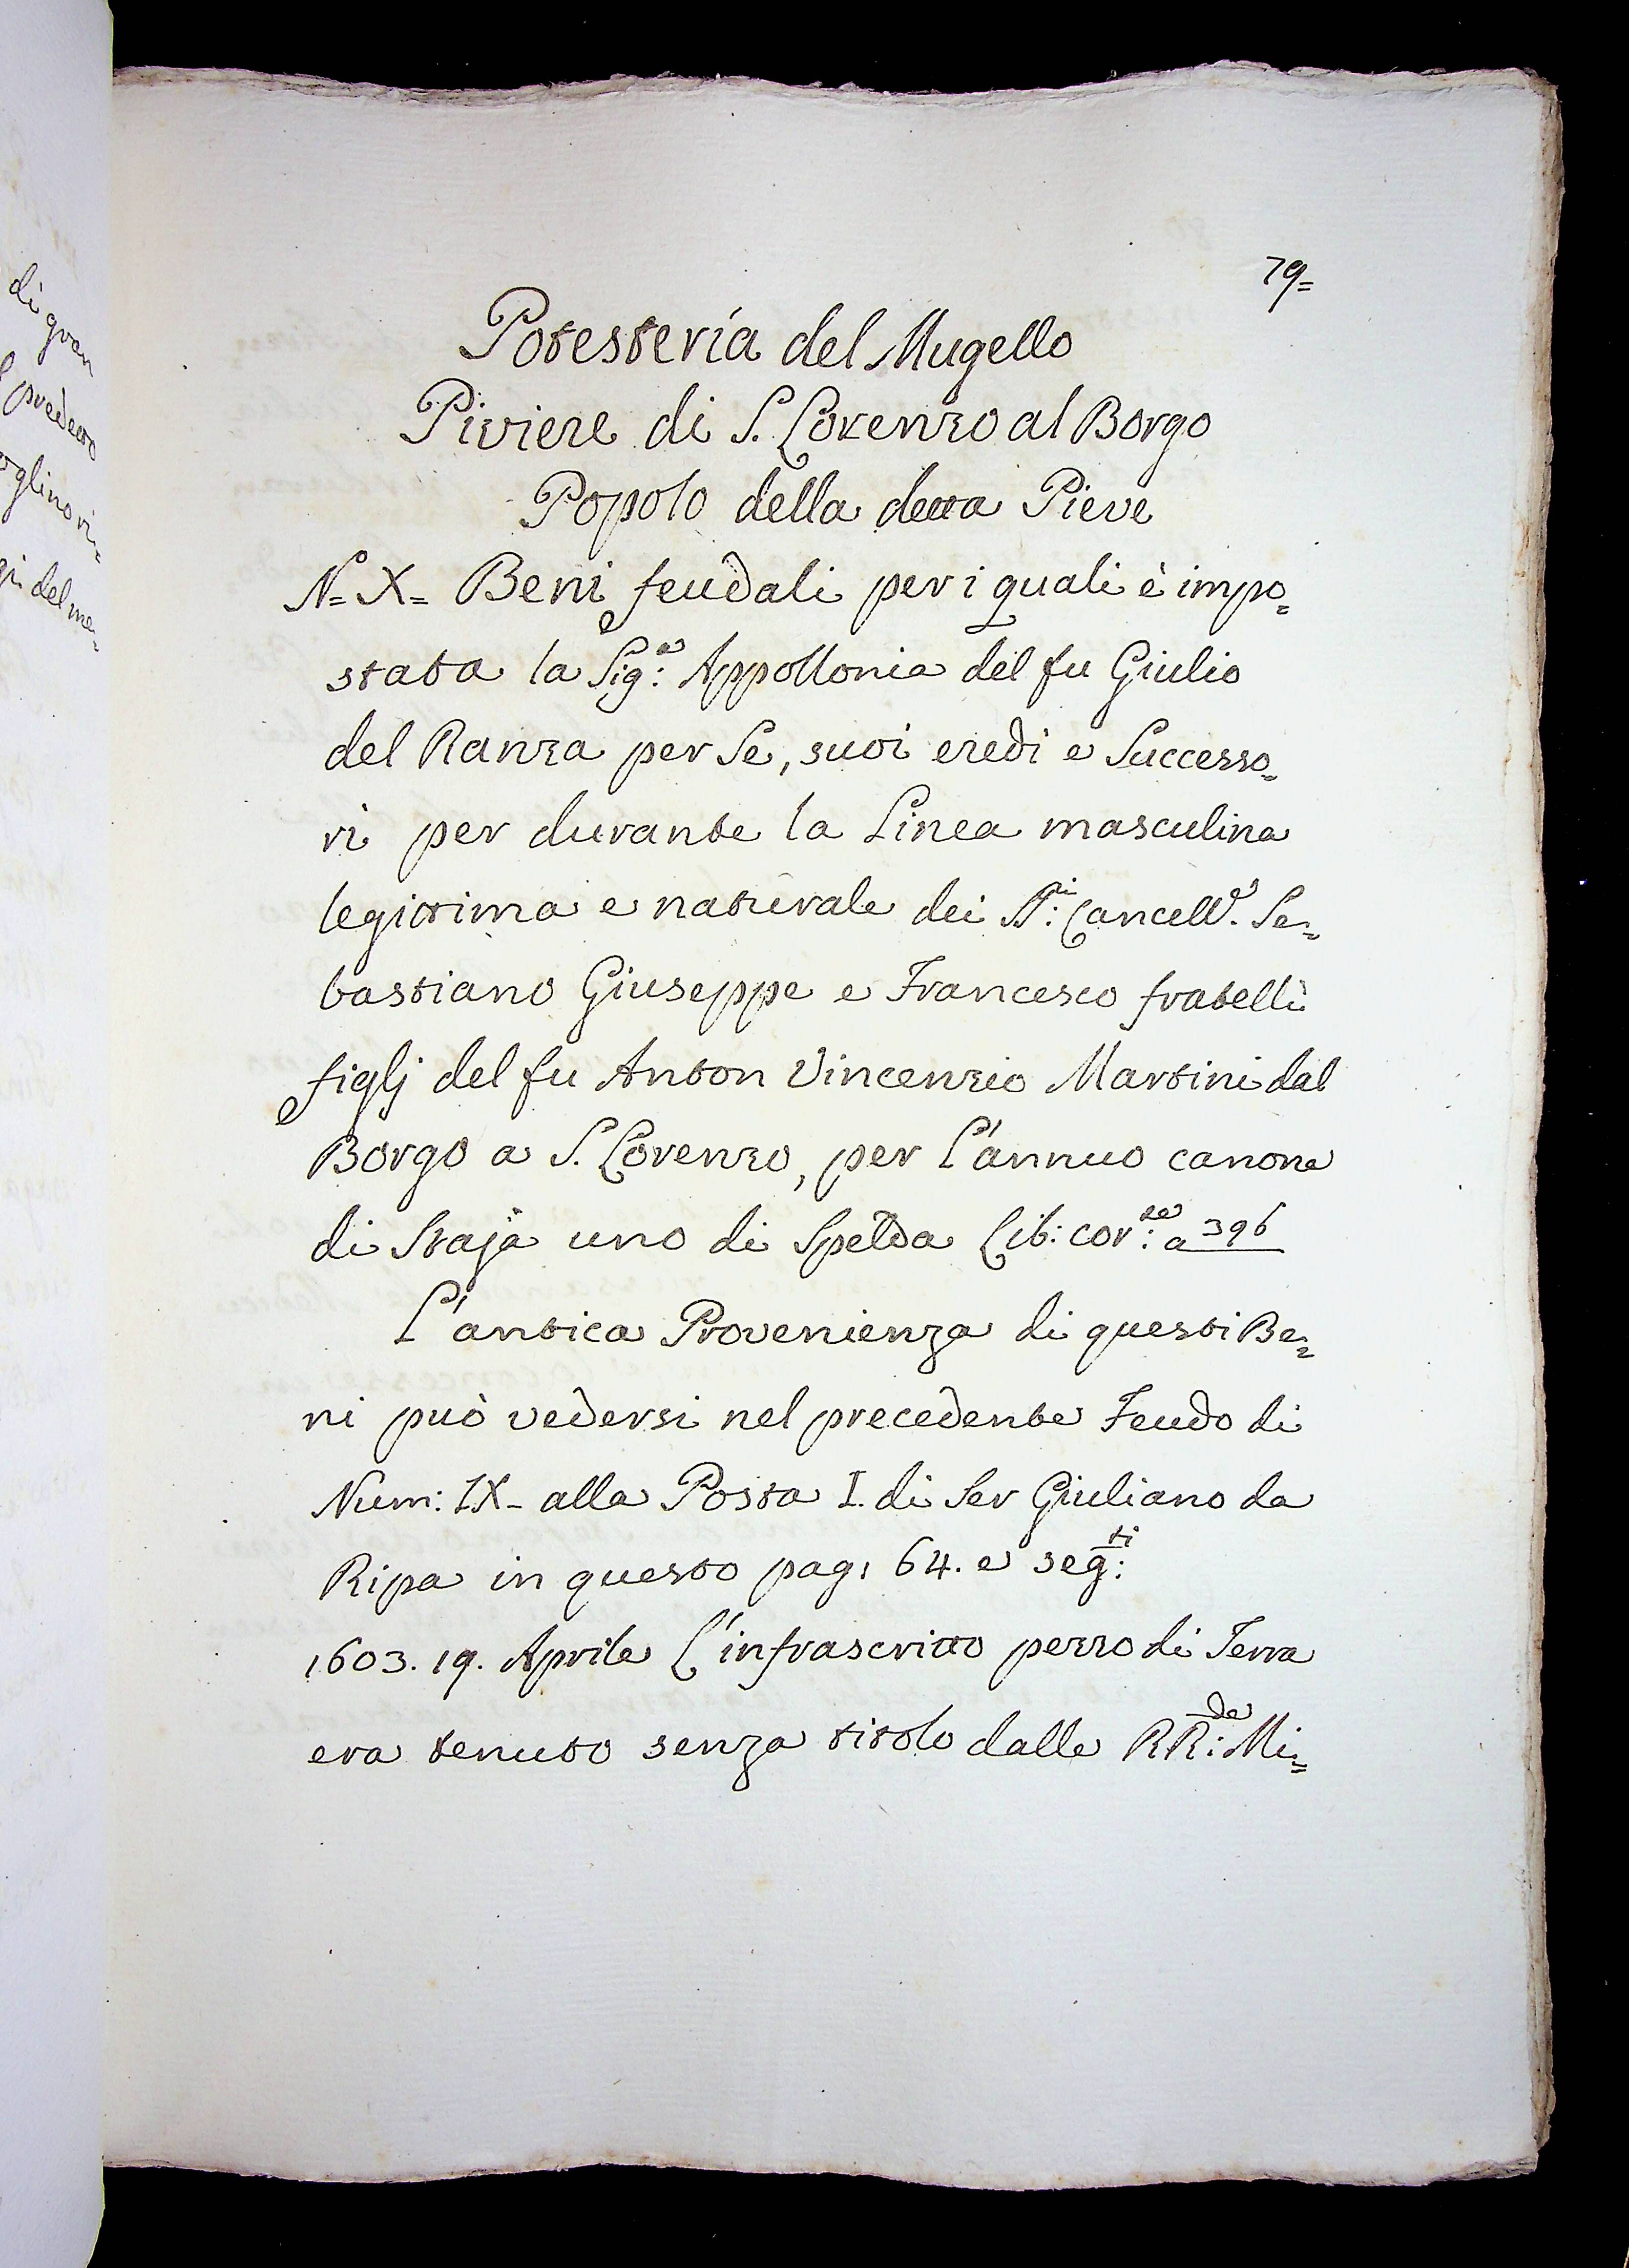 di gran
predetto
oglino ri=
gi del me=
79=
Potesteria del Mugello
Piviere di S. Lorenzo al Borgo
Popolo della detta Pieve
N= X= Beni feudali per i quali è impo=
stata la Sig:ª Appollonia del fu Giulio
del Ranza per Se, suoi eredi e Successo=
ri per durante la Linea masculina
legittima e naturale dei SS:ri Cancell.e Se=
bastiano Giuseppe e Francesco fratelli
figlj del fu Anton Vincenzio Martini dal
Borgo a S. Lorenzo, per l'annuo canone
di Staja uno di Spelda Lib: cor:te a 396
L'antica Provenienza di questi Be=
ni può vedersi nel precedente Feudo di
Num: IX- alla Posta I. di Ser Giuliano da
Ripa in questo pag: 64. e seg:ti
1603. 19. Aprile L'infrascritto pezzo di Terra
era tenuto senza titolo dalle RR:de Mi=